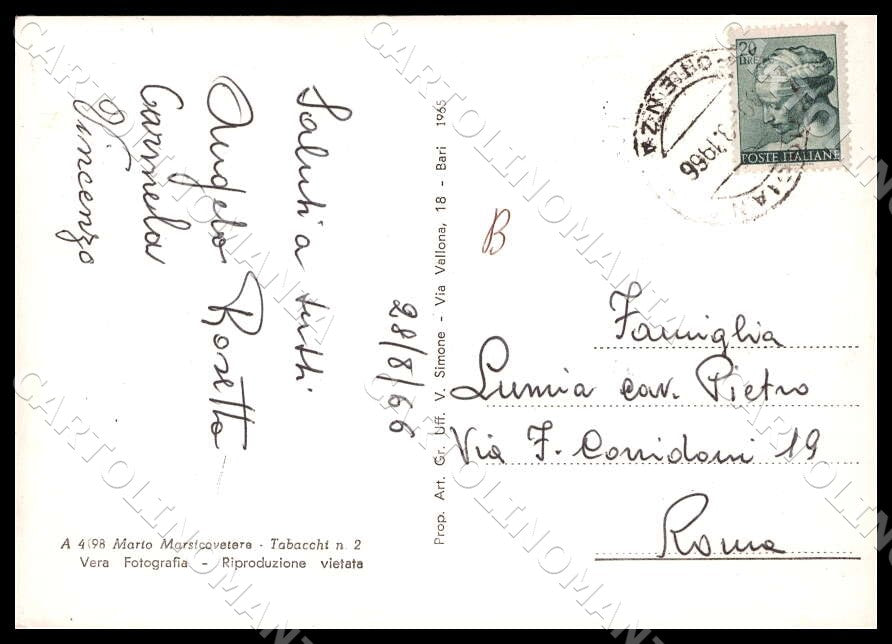 Saluti a tutti
Angelo Rosetta
Carmela
Vincenzo
28/8/66
A 4198 Mario Marsicovetere - Tabacchi n. 2
Vera Fotografia - Riproduzione vietata
Prop. Art. Gr. Uff. V. Simone - Via Vallona, 18 - Bari 1965
B
20
LIRE
POSTE ITALIANE
1966
Famiglia
Lumia cav. Pietro
Via F. Corridoni 19
Roma
CARTOLINOMANIA